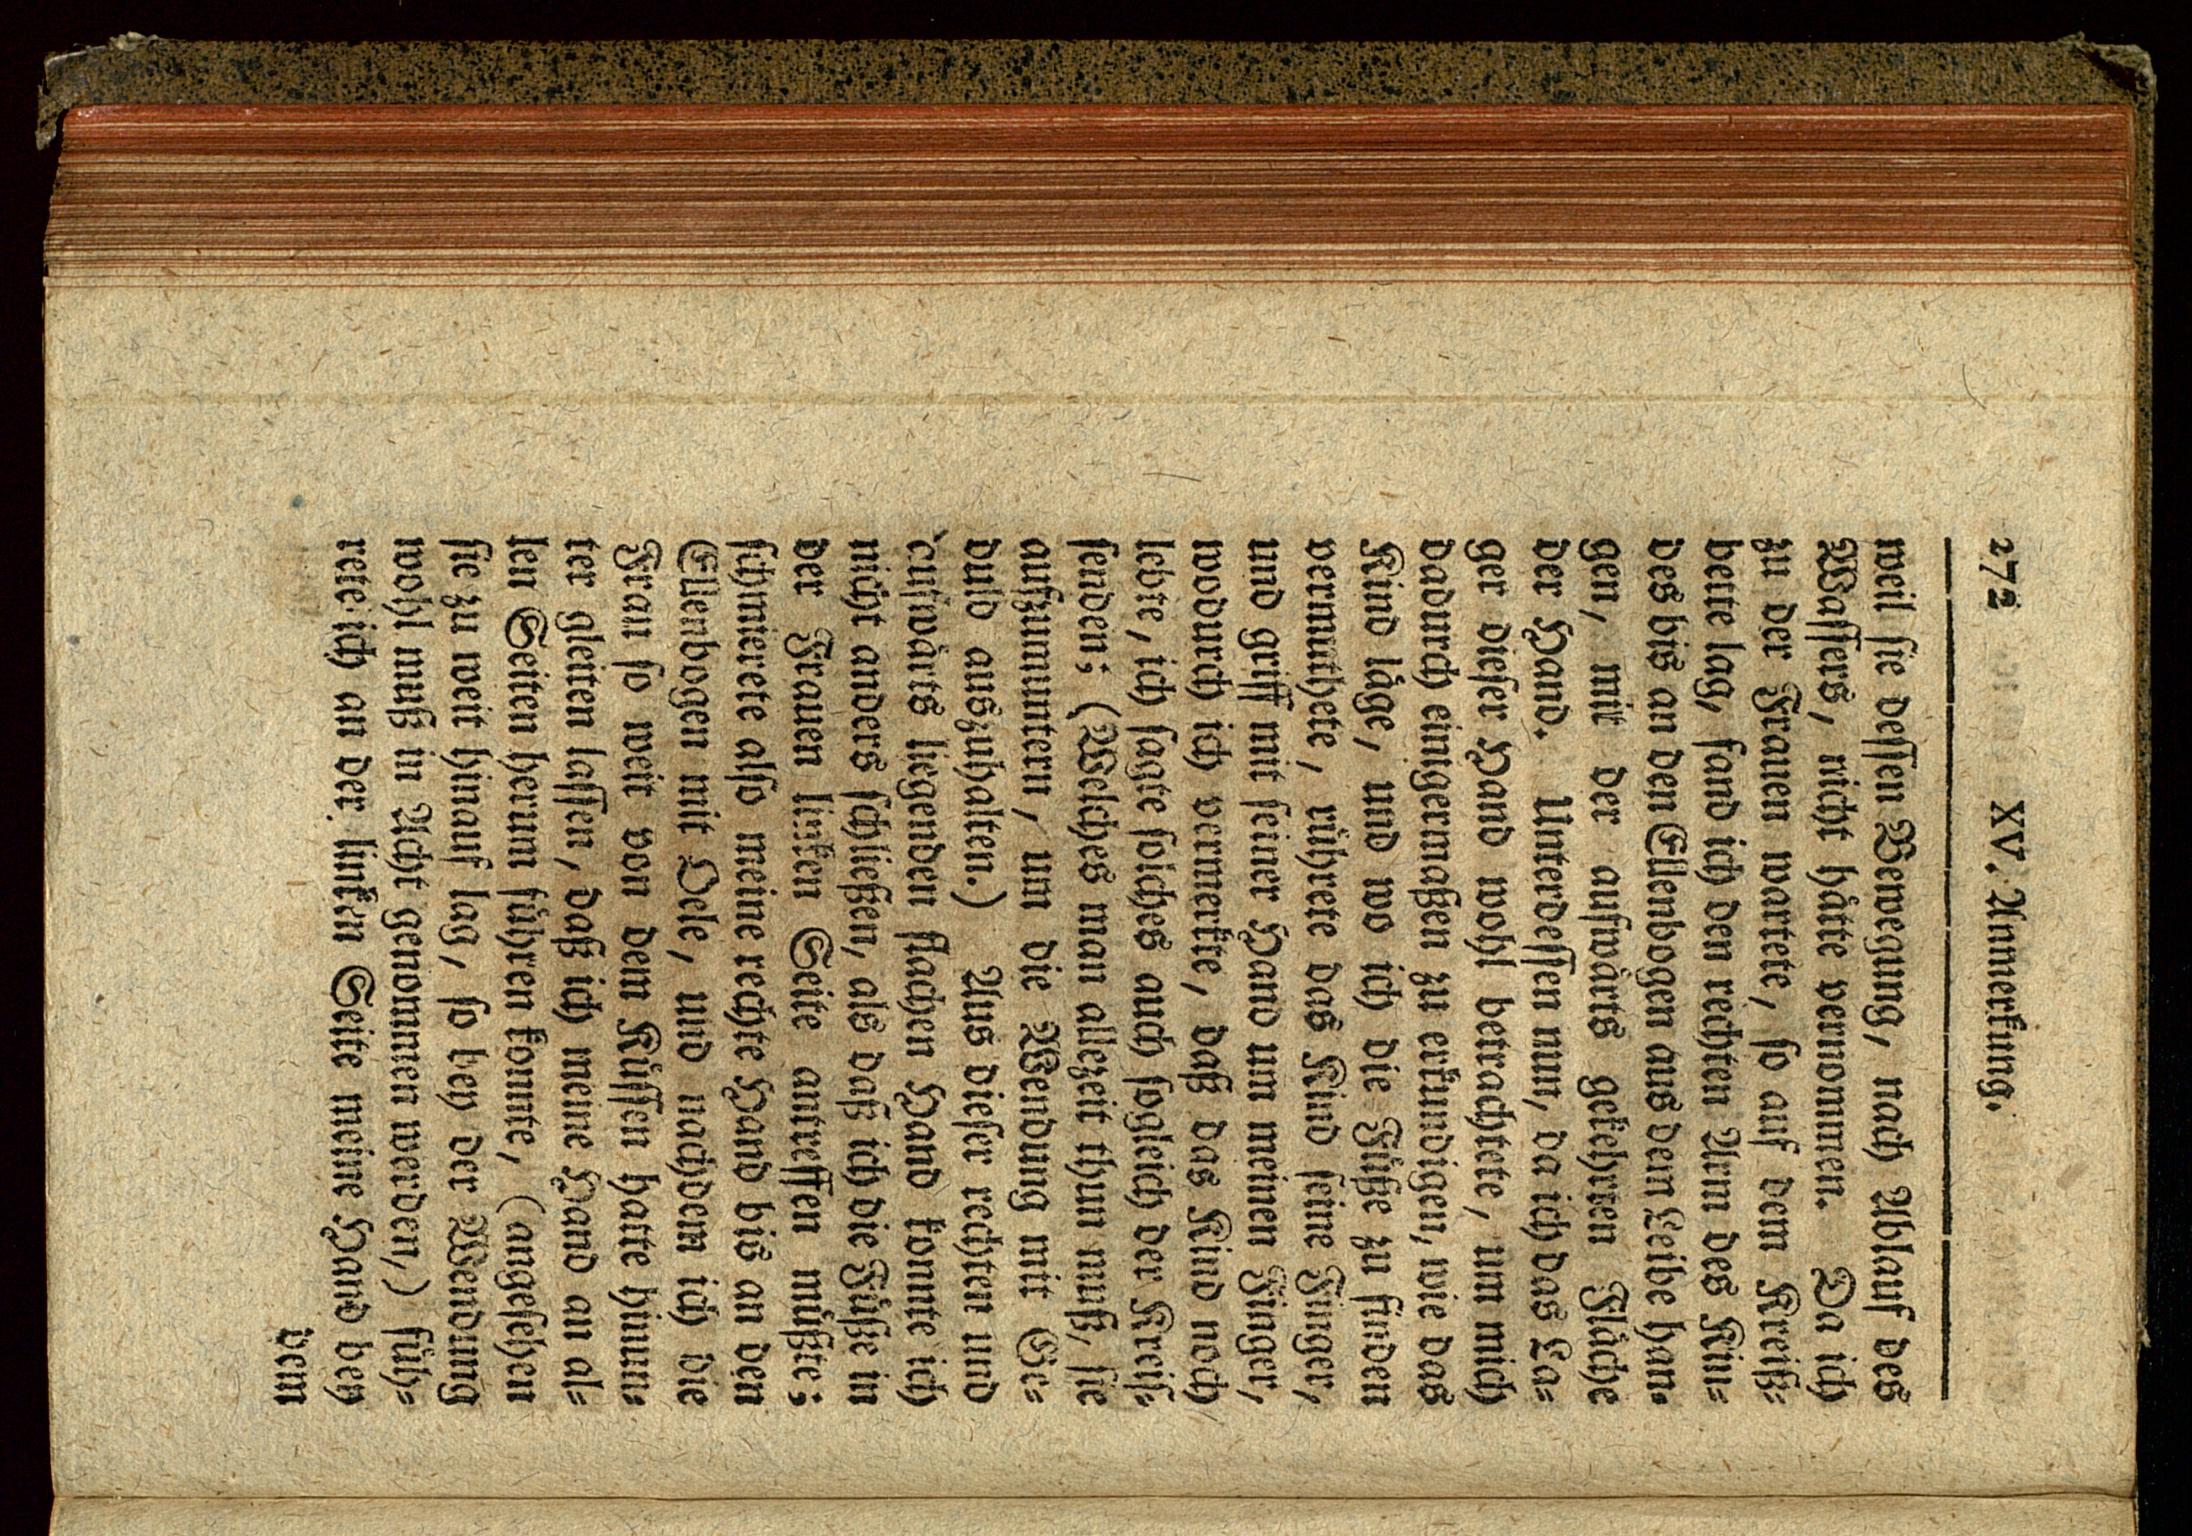 272 XV. Anmerkung.
weil sie dessen Bewegung, nach Ablauf des
Wassers, nicht hätte vernommen. Da ich
zu der Frauen wartete, so auf dem Kreiß-
bette lag, fand ich den rechten Arm des Kin-
des bis an den Ellenbogen aus dem Leibe han-
gen, mit der aufwärts gekehrten Fläche
der Hand. Unterdessen nun, da ich das La-
ger dieser Hand wohl betrachtete, um mich
dadurch einigermaßen zu erkundigen, wie das
Kind läge, und wo ich die Füße zu finden
vermuthete, rührete das Kind seine Finger,
und griff mit seiner Hand um meinen Finger,
wodurch ich vermerkte, daß das Kind noch
lebte, ich sagte solches auch sogleich der Kreis-
senden; (Welches man allezeit thun muß, sie
aufzumuntern, um die Wendung mit Ge-
duld auszuhalten.) Aus dieser rechten und
aufwärts liegenden flachen Hand konnte ich
nicht anders schließen, als daß ich die Füße in
der Frauen linken Seite antreffen müßte;
schmierete also meine rechte Hand bis an den
Ellenbogen mit Oele, und nachdem ich die
Frau so weit von dem Küssen hatte hinun-
ter gleiten lassen, daß ich meine Hand an al-
len Seiten herum führen konnte, (angesehen
sie zu weit hinauf lag, so bey der Wendung
wohl muß in Acht genommen werden,) füh-
rete ich an der linken Seite meine Hand bey
dem